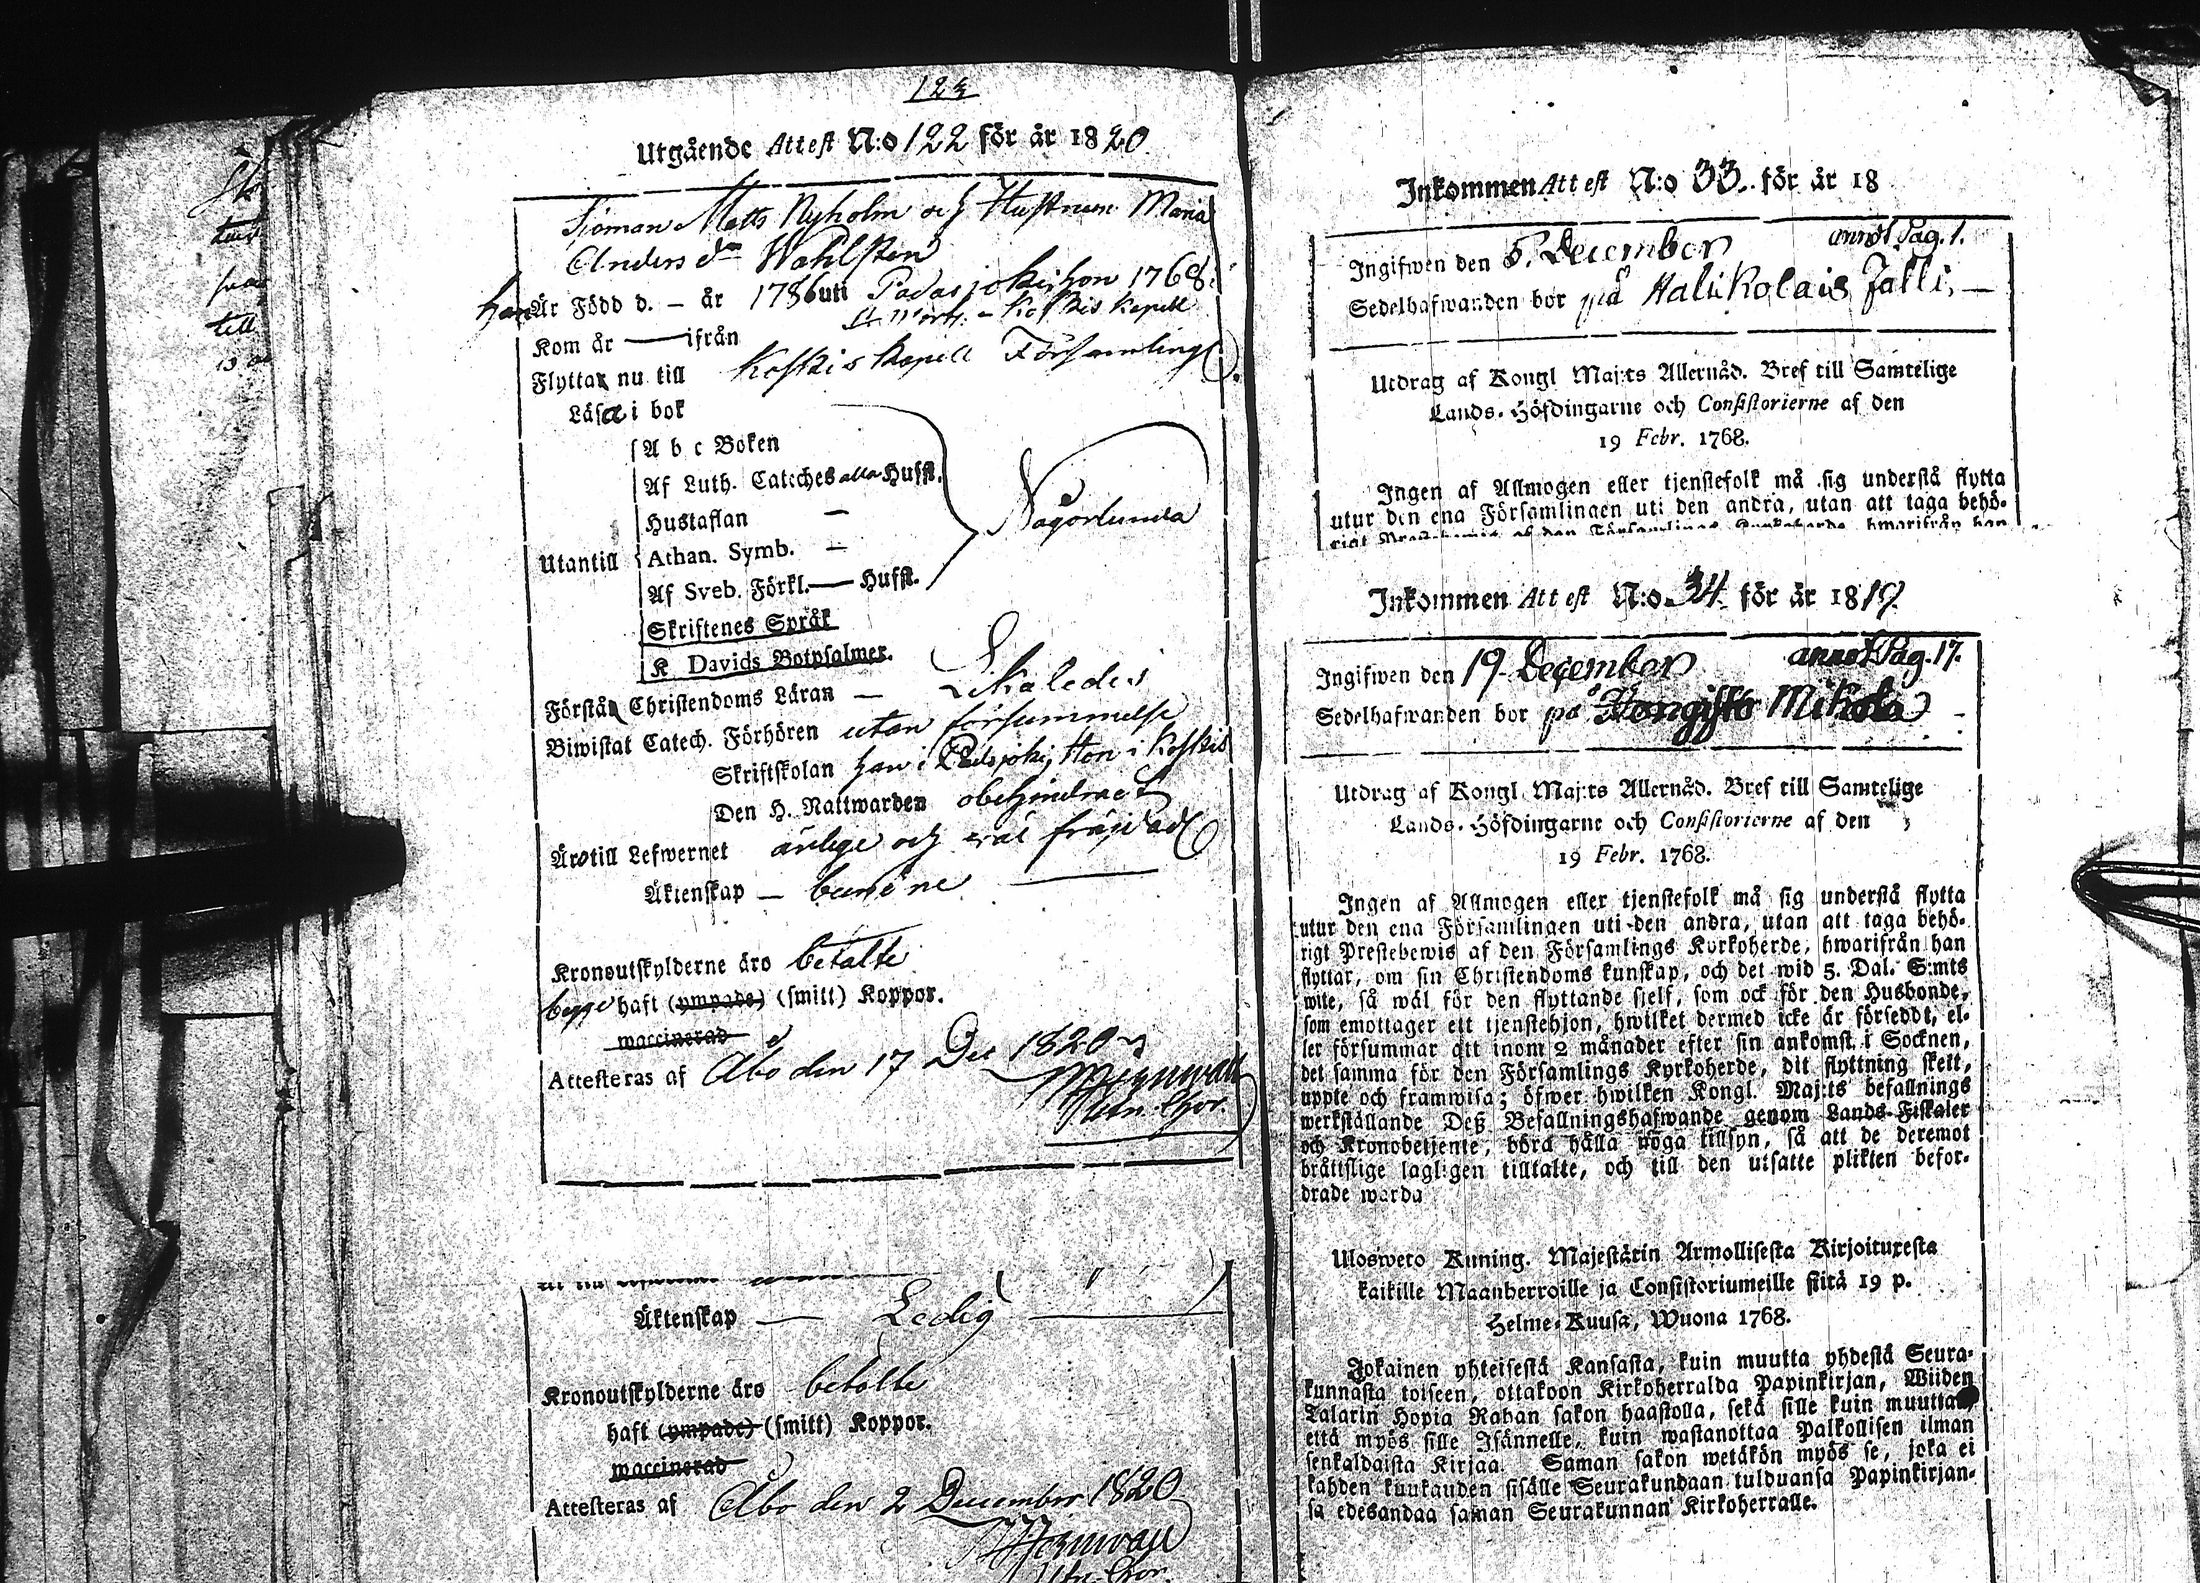 123
Utgående Attest N:o 122 för år 1820
Sjöman Matts Nyholm och Hustrun Maria
Anders dr Wahlsten
han Är Född d. — år 1786 uti Padasjoki hon 1768
Koskis Kapell
Kom år — ifrån
Flyttar nu till Koskis Kapell Församling
Läsa i bok
A b c Boken
Af Luth. Catches alla Hufst.
Hustaflan —
Utantill Athan. Symb. —
Af Sveb. Förkl. — Hufst.
Skriftenes Språk
K Davids Botpsalmer.
Någorlunda
Förstå Christendoms Läran — Likaledes
Biwistat Catech. Förhören utan försummelse
Skriftskolan han i Padasjoki, hon i Koskis
Den H. Nattwarden obehindrat
Äro till Lefwernet ärlige och wäl frejdade
Äktenskap —
Kronoutskylderne äro betalte
begge haft (ympade) (smitt) Koppor.
waccinerad
Attesteras af Åbo den 17 Dec 1820
Äktenskap — Ledig
Kronoutskylderne äro betalte
haft (ympade) (smitt) Koppor.
waccinerad
Attesteras af Åbo den 2 December 1820
Inkommen Attest N:o 33. för år 18
Ingifwen den 5. December annot. Pag. 1.
Sedelhafwanden bor på Halikolais Jalli, —
Utdrag af Kongl Maj:ts Allernåd. Bref till Samtelige
Lands-Höfdingarne och Consistorierne af den
19 Febr. 1768.
Ingen af Allmogen eller tjenstefolk må sig understå flytta
utur den ena Församlingen uti den andra, utan att taga behö-
rigt Prestebewis af den Församlings Kyrkoherde, hwarifrån han
Inkommen Attest N:o 34. för år 1819.
Ingifwen den 19 December annot Pag. 17.
Sedelhafwanden bor på Kongisto Mikola
Utdrag af Kongl. Maj:ts Allernåd. Bref till Samtelige
Lands-Höfdingarne och Consistorierne af den
19 Febr. 1768.
Ingen af Allmogen eller tjenstefolk må sig understå flytta
utur den ena Församlingen uti den andra, utan att taga behö-
rigt Prestebewis af den Församlings Kyrkoherde, hwarifrån han
flyttar, om sin Christendoms kunskap, och det wid 5. Dal. S:mts
wite, så wäl för den flyttande sjelf, som ock för den Husbonde,
som emottager ett tjenstehjon, hwilket dermed icke är försedt, el-
ler försummar att inom 2 månader efter sin ankomst i Socknen,
det samma för den Församlings Kyrkoherde, dit flyttning skett,
uppte och framwisa; öfwer hwilken Kongl. Maj:ts befallnings
werkställande Deß Befallningshafwande genom Lands-Fiskaler
och Kronobetjente, böra hålla nöga tillsyn, så att de deremot
bråttslige lagligen tilltalte, och till den utsatte plikten befor-
drade warda
Ulosweto Kuning. Majestätin Armollisesta Kirjoituxesta
kaikille Maanherroille ja Consistoriumeille siitä 19 p.
Helme-Kuusa, Wuona 1768.
Jokainen yhteisestä Kansasta, kuin muutta yhdestä Seura-
kunnasta toiseen, ottakoon Kirkoherralda Papinkirjan, Wiiden
Talarin Hopia Rahan sakon haastolla, sekä sille kuin muuttaa
että myös sille Isännelle, kuin wastanottaa Palkollisen ilman
senkaldaista Kirjaa. Saman sakon wetäkön myös se, joka ei
kahden kuukauden sisälle Seurakundaan tulduansa Papinkirjan-
sa edesandaa saman Seurakunnan Kirkoherralle.